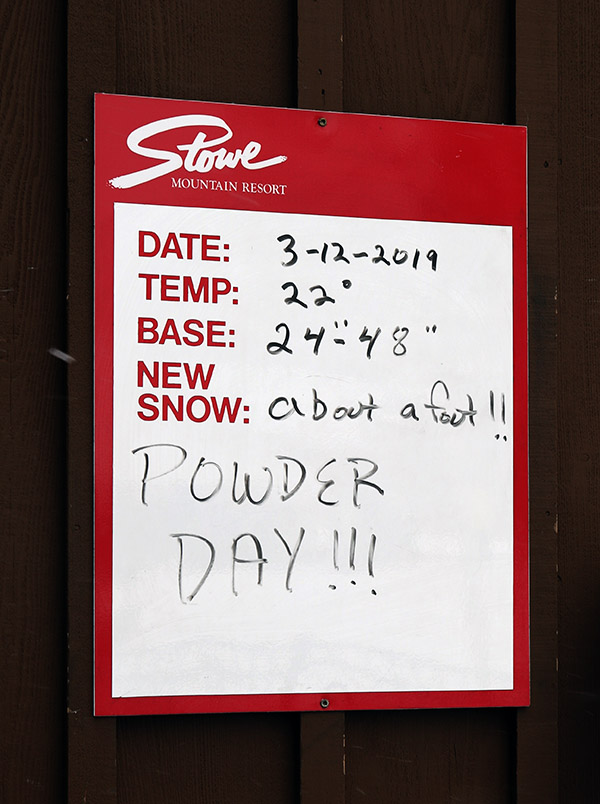 Stowe
MOUNTAIN RESORT
DATE: 3-12-2019
TEMP: 22°
BASE: 24"-48"
NEW
SNOW: about a foot!!
POWDER
DAY!!!